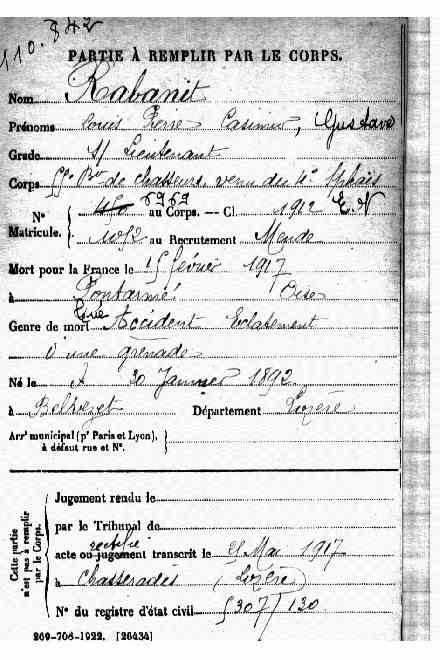 110.842
PARTIE À REMPLIR PAR LE CORPS.
Nom Rabanit
Prénoms Louis Pierre Casimir, Gustave
Grade S/ Lieutenant
Corps de chasseurs, venu du 4e Spahis
6969
No au Corps. — Cl. 1912 E.V
Matricule. au Recrutement Mende
Mort pour la France le 15 février 1917
à Pontarmé Oise
Genre de mort Accident Eclatement
d'une grenade
Né le 20 Janvier 1892
à Belvezet Département Lozère
Arrt municipal (pr Paris et Lyon),
à défaut rue et No.
Cette partie n'est pas à remplir par le Corps.
Jugement rendu le
par le Tribunal de
rectifié
acte ou jugement transcrit le Mai 1917
à Chasseradès (Lozère)
No du registre d'état civil 307/130
269-706-1922. [26434]